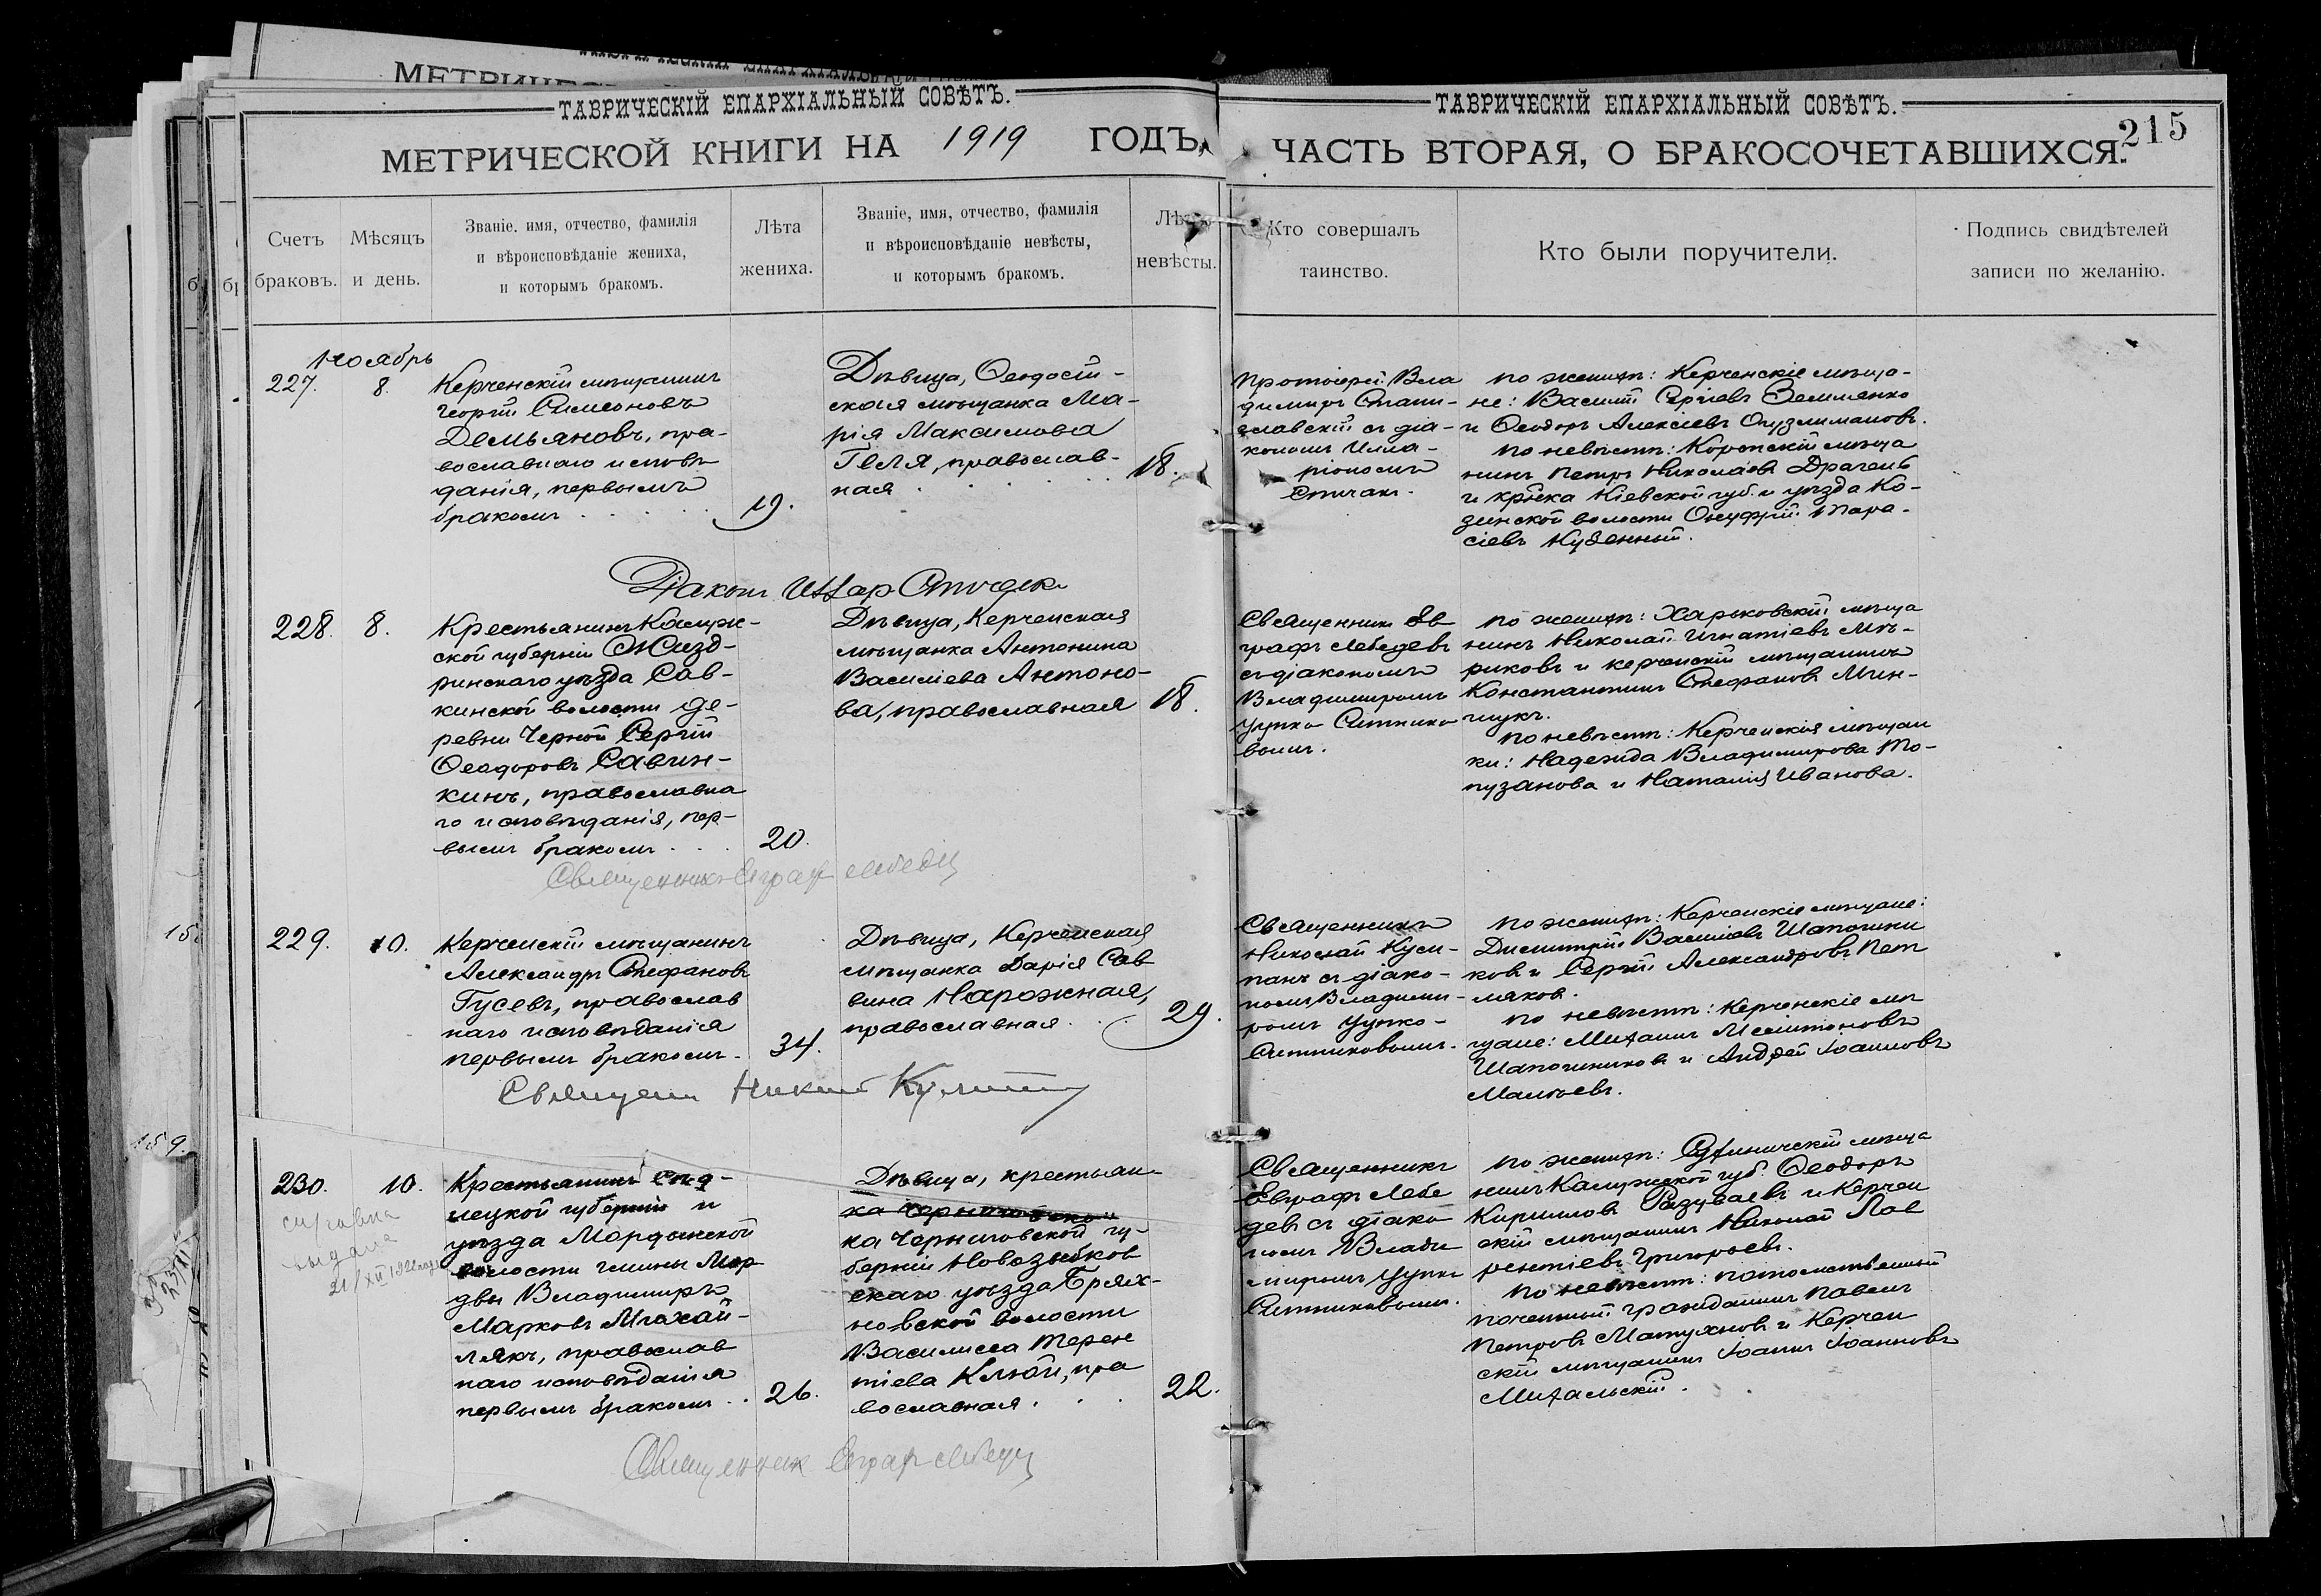 ТАВРИЧЕСКІЙ ЕПАРХІАЛЬНЫЙ СОВѢТЪ.
МЕТРИЧЕСКОЙ КНИГИ НА 1919 ГОДЪ,
Счетъ браковъ.
Мѣсяцъ и день.
Званіе, имя, отчество, фамилія
и вѣроисповѣданіе жениха,
и которымъ бракомъ.
Лѣта
жениха.
Званіе, имя, отчество, фамилія
и вѣроисповѣданіе невѣсты,
и которымъ бракомъ.
Лѣта
невѣсты.
ТАВРИЧЕСКІЙ ЕПАРХІАЛЬНЫЙ СОВѢТЪ.
215
ЧАСТЬ ВТОРАЯ, О БРАКОСОЧЕТАВШИХСЯ.
Кто совершалъ
таинство.
Кто были поручители.
Подпись свидѣтелей
записи по желанію.
Ноябрь
227.
8.
Керченскій мѣщанинъ
Георгій Симеоновъ
Демьяновъ, пра-
вославнаго исповѣ
данія, первымъ
бракомъ
19.
Дѣвица, Ѳеодосій-
ская мѣщанка Ма-
рія Максимова
Геля, православ-
ная
18.
Протоіерей Вла
димиръ Стани-
славскій съ діа-
кономъ Илла-
ріономъ
по женихѣ: Керченскіе мѣща-
не: Василій Сергіевъ Земляенко
и Ѳеодоръ Алексіевъ
по невѣстѣ: Коропскій мѣща
нинъ Петръ Николаевъ Драгель
и кр-нъ Кіевской губ. и уѣзда Ко-
зинской волости Онуфрій Тара-
сіевъ
Діаконъ
228.
8.
Крестьянинъ Калуж-
ской губерніи Жизд-
ринскаго уѣзда Сав-
кинской волости де-
ревни Черной Сергій
Ѳеодоровъ Савин-
кинъ, православна
го исповѣданія, пер-
вымъ бракомъ
20.
Дѣвица, Керченская
мѣщанка Антонина
Василіева Антоно-
ва, православная
18.
Священникъ Ев
графъ Лебедевъ
съ діакономъ
Владимиромъ
Цупко-Ситнико
вымъ.
по женихѣ: Харьковскій мѣща
нинъ Николай Игнатіевъ Мѣ-
риковъ и керченскій мѣщанинъ
Константинъ Стефановъ Мин-
чукъ.
по невѣстѣ: Керченскія мѣщан
ки: Надежда Владимирова То-
пузанова и Наталія Иванова.
Священникъ Евграф Лебедев
229.
10.
Керченскій мѣщанинъ
Александръ Стефановъ
Гусевъ, православ
наго исповѣданія
первымъ бракомъ
34.
Дѣвица, Керченская
мѣщанка Дарія Сав
вина Нарожная,
православная
29.
Священникъ
Николай Кули-
панъ съ діако-
номъ Владими-
ромъ Цупко-
Ситниковымъ.
по женихѣ: Керченскіе мѣщане:
Димитрій Василіевъ Шапошни
ковъ и Сергій Александровъ Пет
ляковъ.
по невѣстѣ: Керченскіе мѣ
щане: Михаилъ Мелитоновъ
Шапошниковъ и Андрей Іоанновъ
Священ
230.
10.
справка
выдана
Крестьянинъ Сѣд-
лецкой губерніи и
уѣзда Мордынской
волости гмины Мор
ды Владимиръ
Марковъ Михай-
лякъ, православ
наго исповѣданія
первымъ бракомъ
26.
Дѣвица, крестьян
ка Черниговской гу-
берніи Новозыбков
скаго уѣзда Брях-
новской волости
Василисса Терен
тіева Клюй, пра
вославная
22.
Священникъ
Евграфъ Лебе
девъ съ діако
номъ Влади
миромъ Цупко
Ситниковымъ.
по женихѣ: Сухиничскій мѣща
нинъ Калужской губ. Ѳеодоръ
Кирилловъ Разуваевъ и Керчен
скій мѣщанинъ Николай Лав
рентіевъ Григорьевъ.
по невѣстѣ: потомственный
почетный гражданинъ Павелъ
Петровъ Матухновъ и Керчен
скій мѣщанинъ Іоаннъ Іоанновъ
Михальскій.
Священник Евграф Лебедев
159.